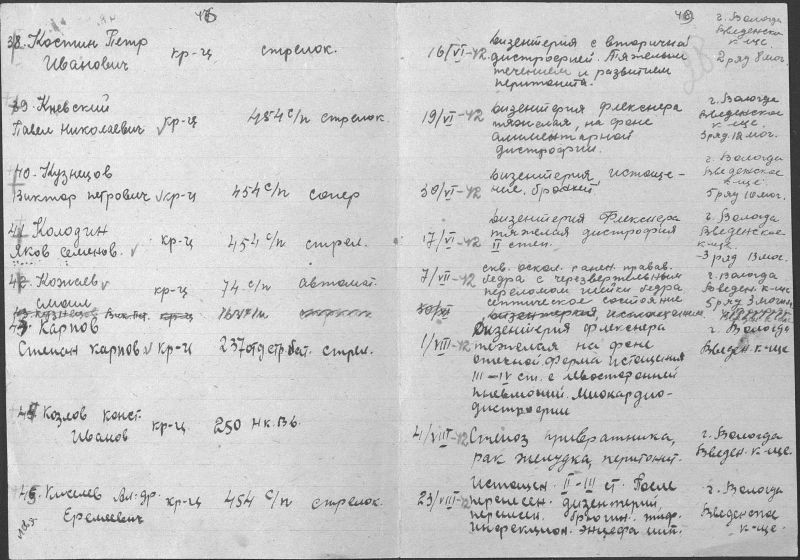 45
38. Костин Петр
Иванович кр-ц стрелок.
39. Киевский
Павел Николаевич кр-ц 454 с/п стрелок.
40. Кузнецов
Виктор петрович кр-ц 454 с/п сапер
41. Колодин
Яков семенов. кр-ц 454 с/п стрел.
42. Кожаев
смаил кр-ц 74 с/п автомат.
43 Карпов
Степан карпов кр-ц 237 отд стр бат. стрел.
44 Козлов конст.
Иванов кр-ц 250 нк.вд.
45. Киселев Ал-др.
Еремеевич кр-ц 454 с/п стрелок.
46
16/VI-42 Дизентерия с вторичной
дистрофией. Тяжелым
течением и развитием
перитонита.
г. Вологда
Введенско
к-ще.
2 ряд 8 мог.
19/VI-42 Дизентерия Флекснера
тяжелая, на фоне
алиментарной
дистрофии.
г. Вологда
Введенское
к-ще.
3 ряд 12 мог.
30/VI-42 Дизентерия, истоще-
ние,
г. Вологда
Введенское
к-ще.
5 ряд 10 мог.
17/VI-42 Дизентерия Флекснера
тяжелая дистрофия
II степ.
г. Вологда
Введенское
к-ще.
3 ряд 13 мог.
7/VII-42 оскол. ранен. правая.
бедра с черезвертельным
переломом шейки бедра
септическое состояние
г. Вологда
Введен. к-ще
5 ряд 3 могил
1/VIII-42 Дизентерия Флекснера
тяжелая на фоне
отечной форма истощения
III-IV ст. с левосторонней
пневмонией. Миокардио-
дистрофии
г. Вологда
Введен. к-ще
4/VIII-42 Стеноз привратника,
рак желудка, перитонит.
г. Вологда
Введен. к-ще.
23/VIII-42 Истощен. II-III ст. После
перенесен. дизентерии,
перенесен. брюшн. тиф.
инфекцион. энцефалит.
г. Вологда
Введенское
к-ще.